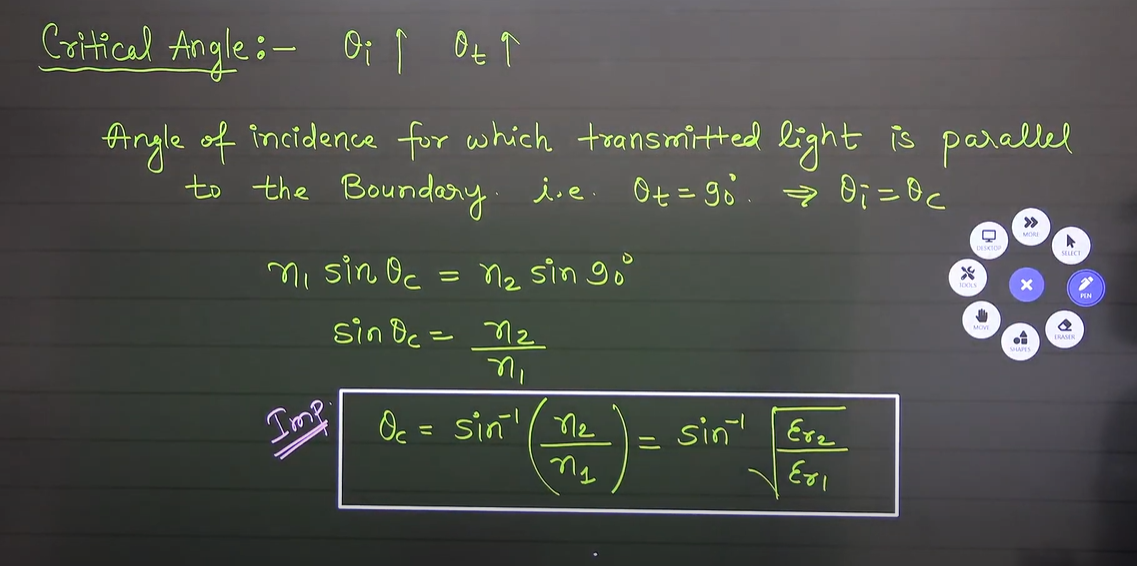 Critical Angle:- θi ↑ θt ↑
Angle of incidence for which transmitted light is parallel
to the Boundary. i.e. θt = 90° ⇒ θi = θc
n1 sin θc = n2 sin 90°
sin θc = n2/n1
Imp. θc = sin⁻¹(n2/n1) = sin⁻¹ √(εr2/εr1)
MORE
DESKTOP
SELECT
TOOLS
PEN
MOVE
ERASER
SHAPES